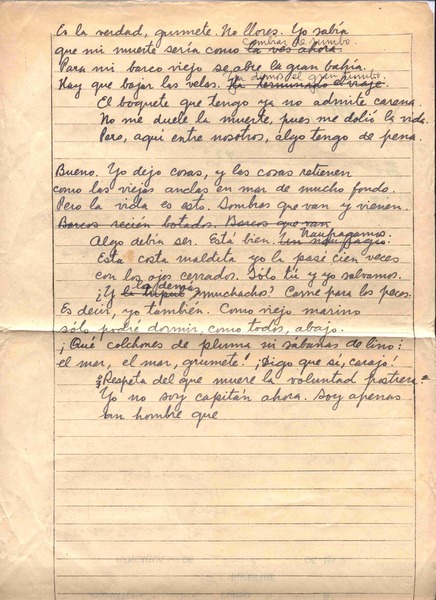 Es la verdad, grumete. No llores. Yo sabía
cambiar de rumbo.
que mi muerte sería como la ves ahora.
Para mi barco viejo se abre la gran bahía.
Ya dimos el gran rumbo.
Hay que bajar las velas. Ha terminado el viaje.
El boquete que tengo ya no admite carena.
No me duele la muerte, pues me dolió la vida.
Pero, aquí entre nosotros, algo tengo de pena.
Bueno. Yo dejo cosas, y las cosas retienen
como las viejas anclas en mar de mucho fondo.
Pero la vida es esto. Sombras que van y vienen.
Barcos recién botados. Barcos que van
Naufragamos.
Algo debía ser. Está bien. Un naufragio.
Esta costa maldita yo la pasé cien veces
con los ojos cerrados. Sólo tú y yo salvamos.
los demás
¿Y la tripul muchachos? Carne para los peces.
Es decir, yo también. Como viejo marino
sólo podré dormir, como todos, abajo.
¡Qué colchones de pluma ni sábanas de lino:
el mar, el mar, grumete! ¡Digo que sí, carajo!
¡Respeta del que muere la voluntad postrera!
Yo no soy capitán ahora. Soy apenas
un hombre que